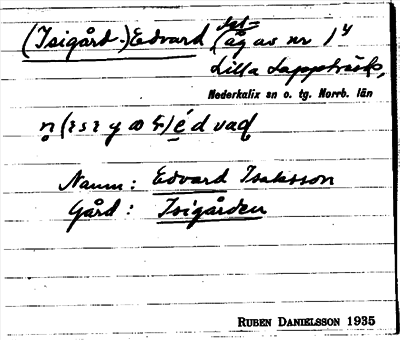 (Isigård-)Edvard (åg av nr 1⁴
Lilla Lappträsk,
Nederkalix sn o. tg. Norrb. län
Namn: Edvard Isaksson
Gård: Isigården
RUBEN DANIELSSON 1935